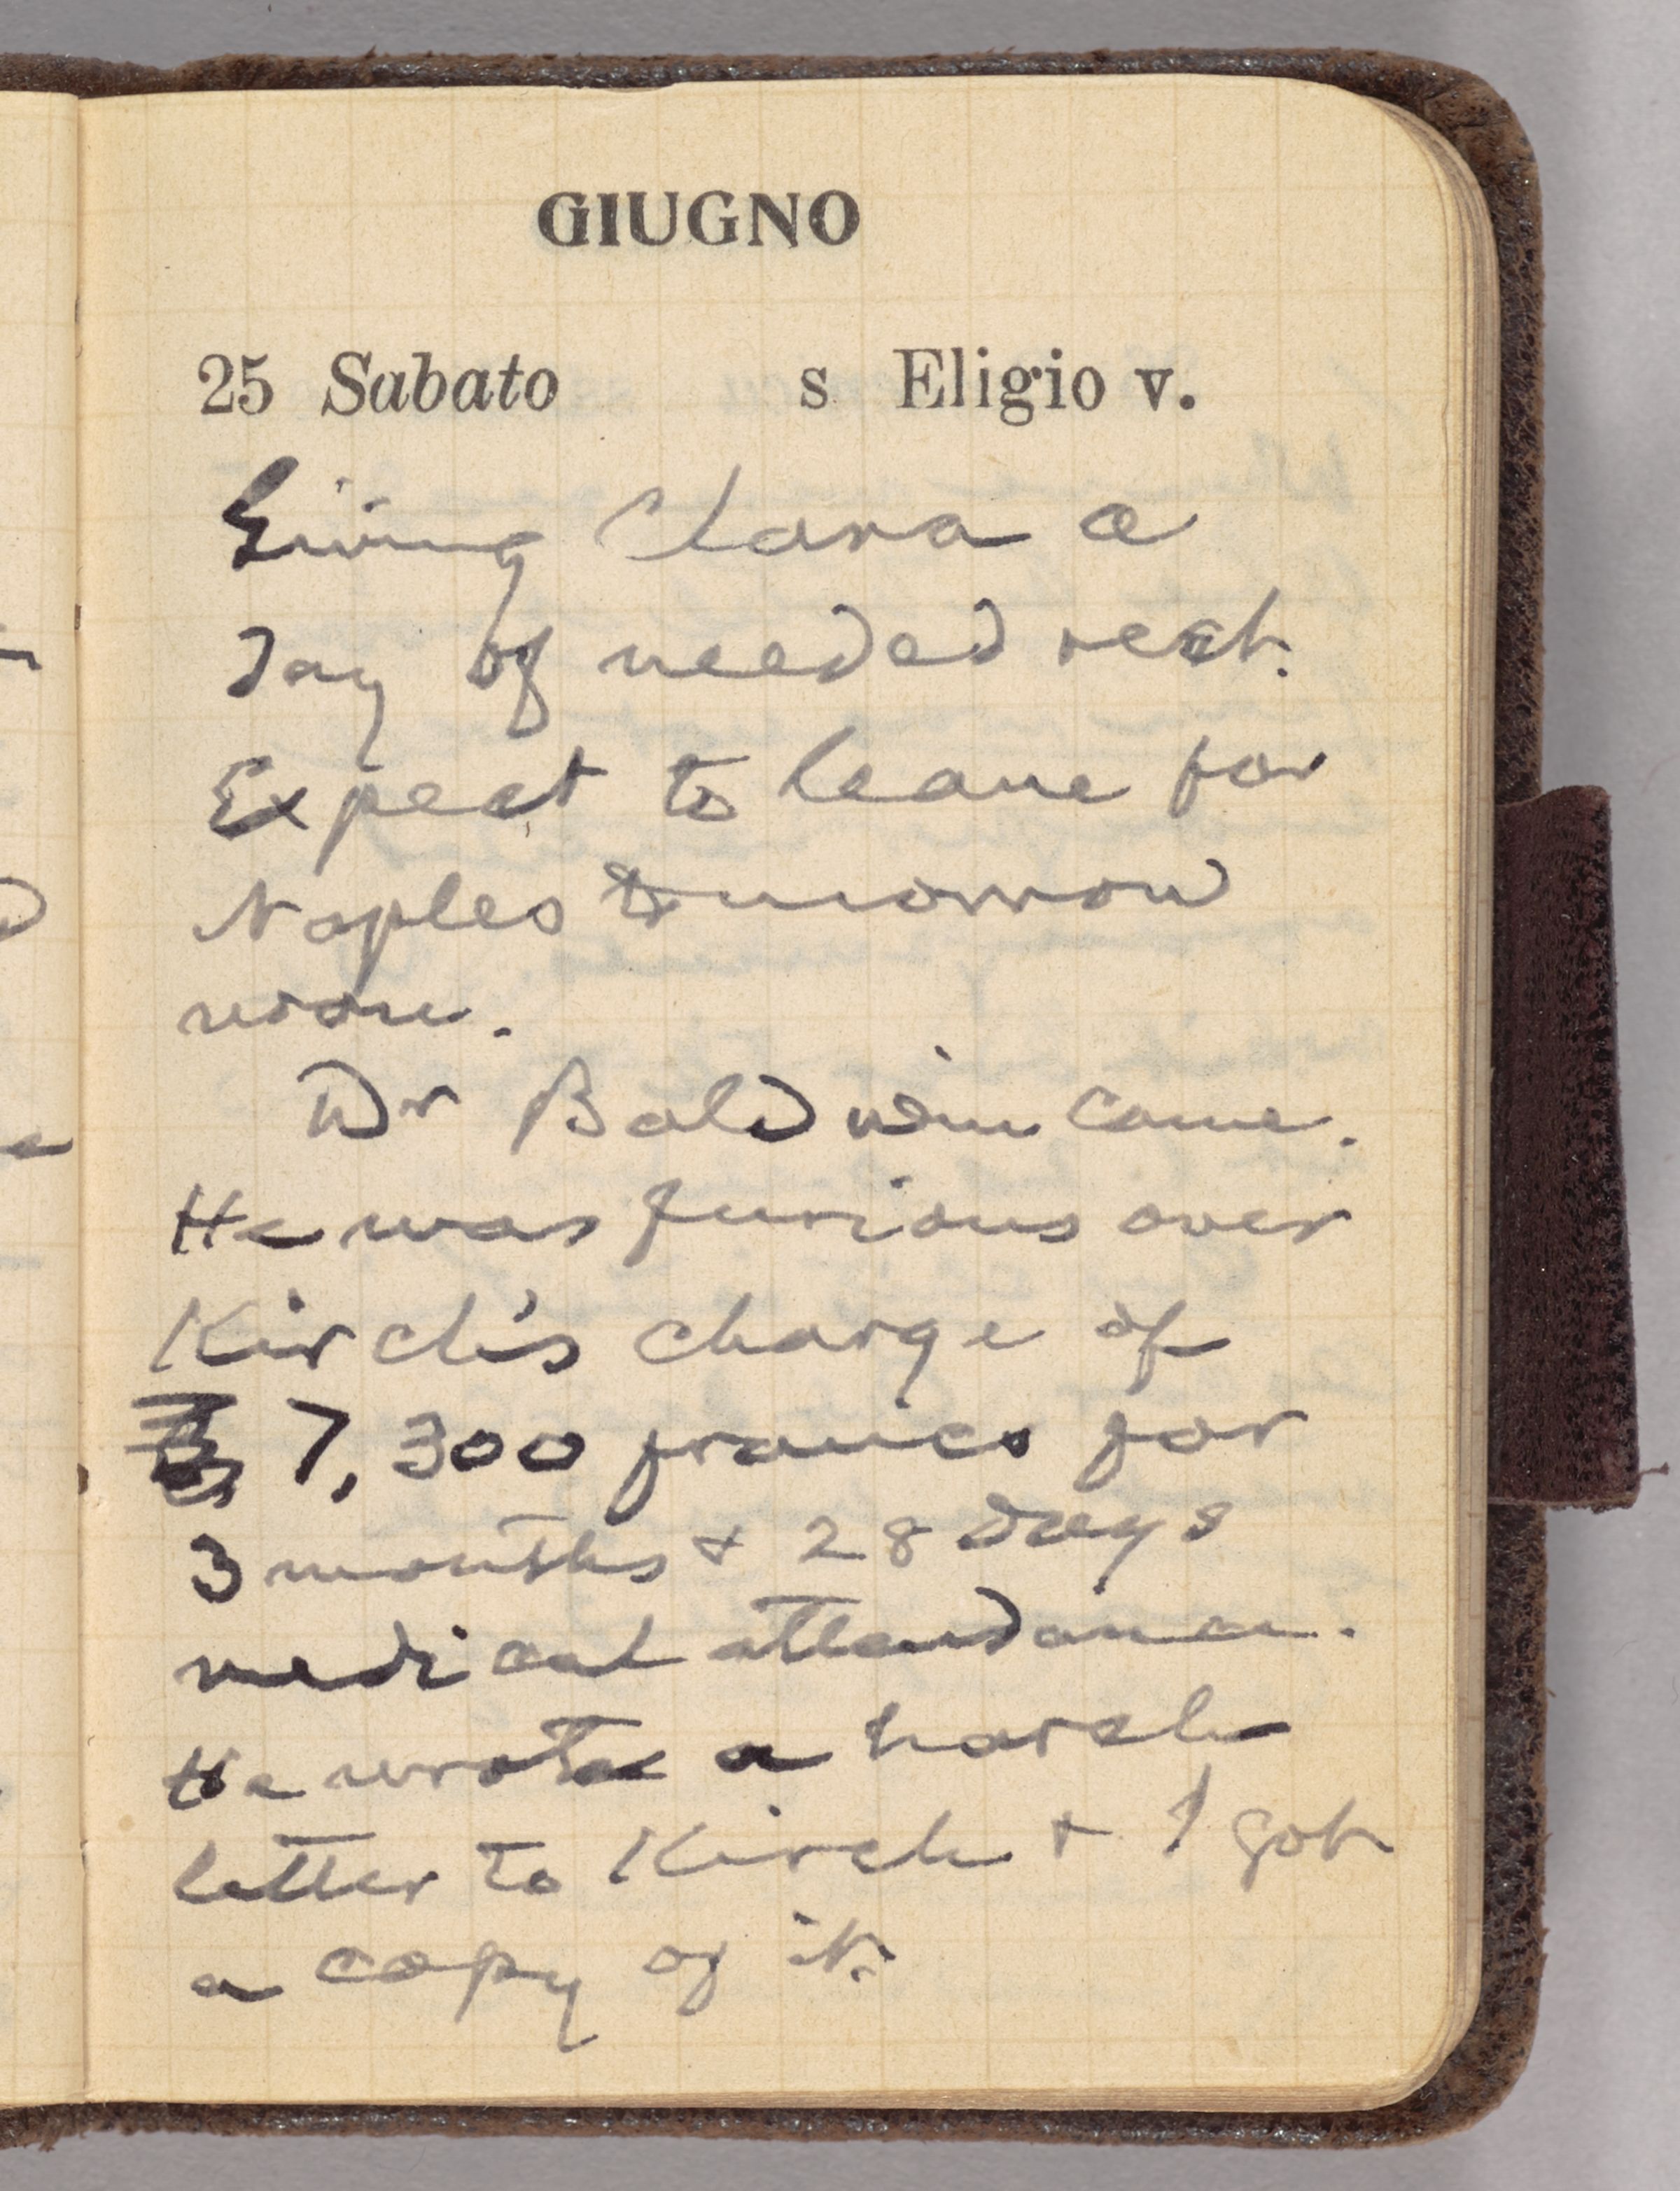 GIUGNO
25 Sabato s Eligio v.
Giving Clara a
day of needed rest.
Expect to leave for
Naples tomorrow
noon.
Dr Baldwin came.
He was furious over
Kirch's charge of
7,300 francs for
3 months & 28 days
medical attendance.
He wrote a harsh
letter to Kirch & I got
a copy of it.